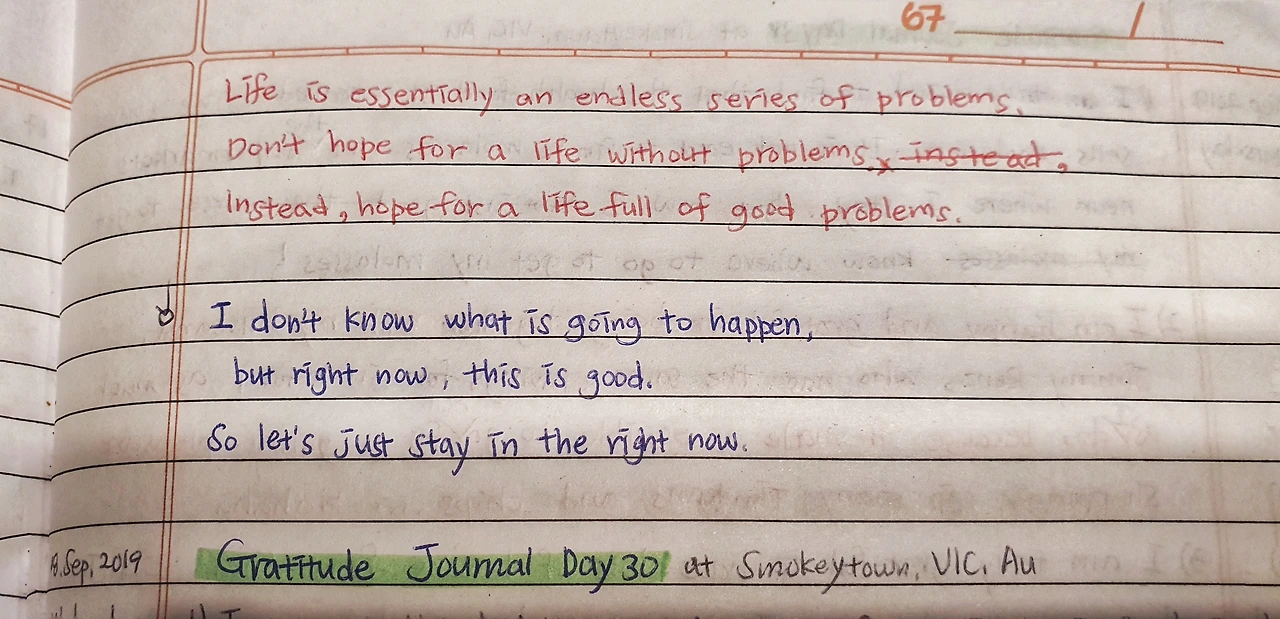 67 /
Life is essentially an endless series of problems.
Don't hope for a life without problems. instead,
Instead, hope for a life full of good problems.
I don't know what is going to happen,
but right now, this is good.
So let's just stay in the right now.
Sep, 2019 Gratitude Journal Day 30 at Smokeytown, VIC, Au